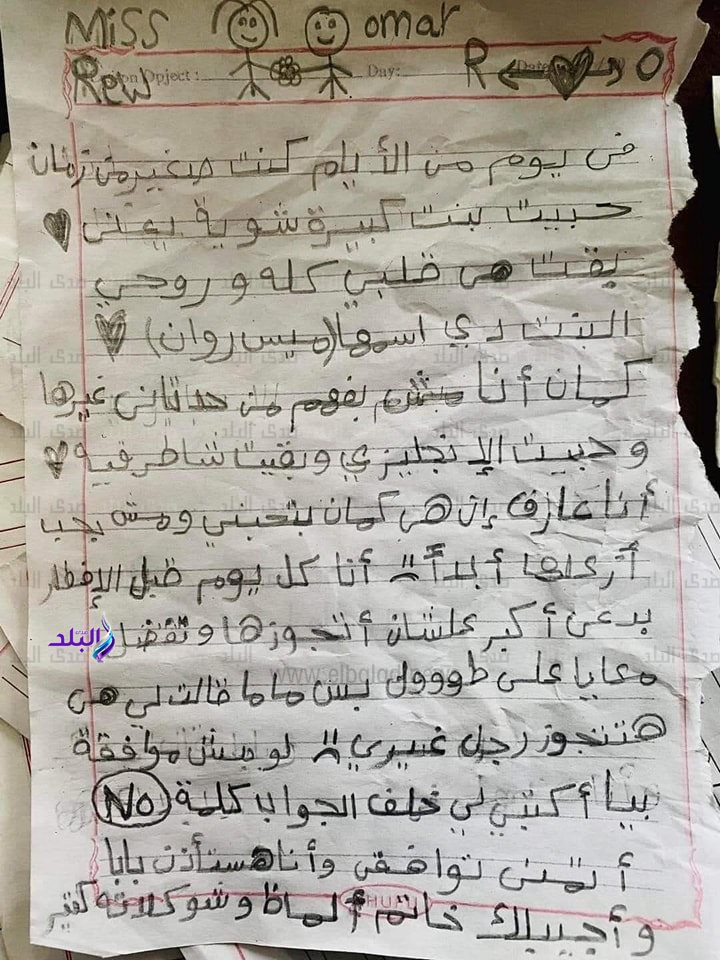 Miss omar
Rew on Opject: Day: R Date O
فى يوم من الأيام كنت صغير من زمان
حبيت بنت كبيرة شوية يعنى
بقت هى قلبي كله و روحي
البنت دي اسمها (ميس روان)
كمان أنا مش بفهم من حد تانى غيرها
و حبيت الإنجليزي وبقيت شاطر فيه
أنا عارف إن هى كمان بتحبني ومش بحب
أزعلها أبداً أنا كل يوم قبل الإفطار
بدعى أكبر علشان أتجوزها وتفضل
معايا على طووول بس ماما قالت لي هى
هتتجوز رجل غيري لو مش موافقة
بيا أكتبي لي خلف الجواب كلمة No
أتمنى توافقى وأنا هستأذن بابا
و أجيبلك خاتم ألماظ وشوكلاته كتير
صدى البلد
www.elbalad.news